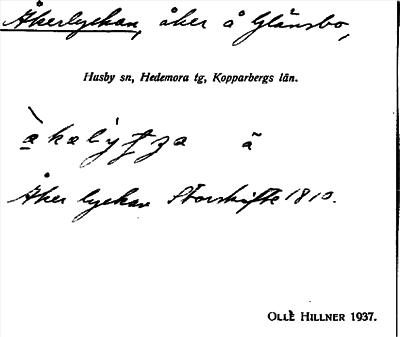 Åkerlyckan, åker å Glänsbo,
Husby sn, Hedemora tg, Kopparbergs län.
ä
Åkerlyckan Storskifte 1810.
OLLE HILLNER 1937.